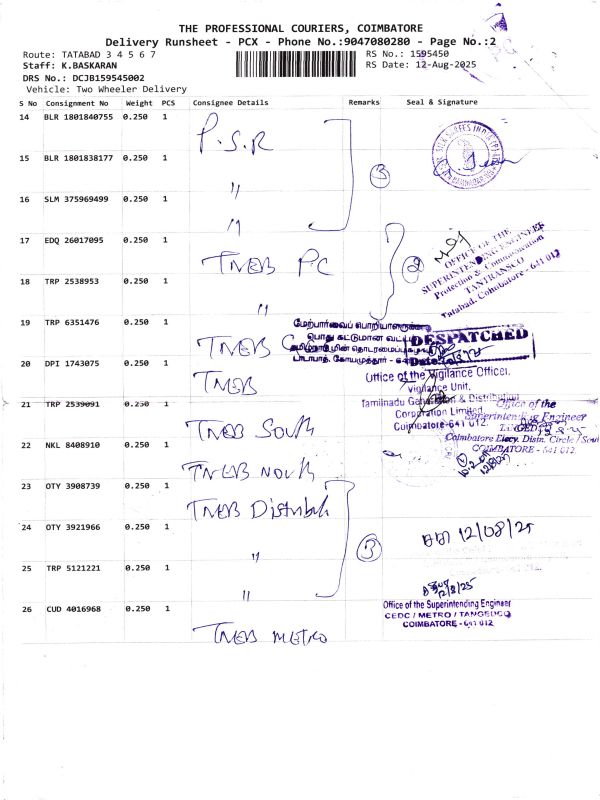 THE PROFESSIONAL COURIERS, COIMBATORE
Delivery Runsheet - PCX - Phone No.:9047080280 - Page No.:2
Route: TATABAD 3 4 5 6 7
RS No.: 1595450
Staff: K.BASKARAN
RS Date: 12-Aug-2025
DRS No.: DCJB159545002
Vehicle: Two Wheeler Delivery
S No Consignment No Weight PCS Consignee Details Remarks Seal & Signature
14 BLR 1801840755 0.250 1
P.S.R
15 BLR 1801838177 0.250 1
"
3
16 SLM 375969499 0.250 1
"
17 EDQ 26017095 0.250 1
TNEB PC
2
OFFICE OF THE
SUPERINTENDING ENGINEER
Protection & Communication
TANTRANSCO
Tatabad, Coimbatore - 641 012
18 TRP 2538953 0.250 1
"
19 TRP 6351476 0.250 1
TNEB
மேற்பார்வைப் பொறியாளர்
பொது கட்டுமான வட்டம்
டாடாபாத், கோயமுத்தூர் - 641
DESPATCHED
Date:
20 DPI 1743075 0.250 1
TNEB
Office of the Vigilance Officer,
Vigilance Unit,
Tamilnadu Generation & Distribution
Corporation Limited,
Coimbatore-641 012.
21 TRP 2539091 0.250 1
TNEB South
Office of the
Superintending Engineer
Coimbatore Elecy. Distn. Circle / South
COIMBATORE - 641 012.
22 NKL 8408910 0.250 1
TNEB North
23 OTY 3908739 0.250 1
TNEB Distribuh
24 OTY 3921966 0.250 1
"
3
12/08/25
25 TRP 5121221 0.250 1
"
12/8/25
26 CUD 4016968 0.250 1
TNEB metro
Office of the Superintending Engineer
CEDC / METRO / TANGEDCO
COIMBATORE - 641 012